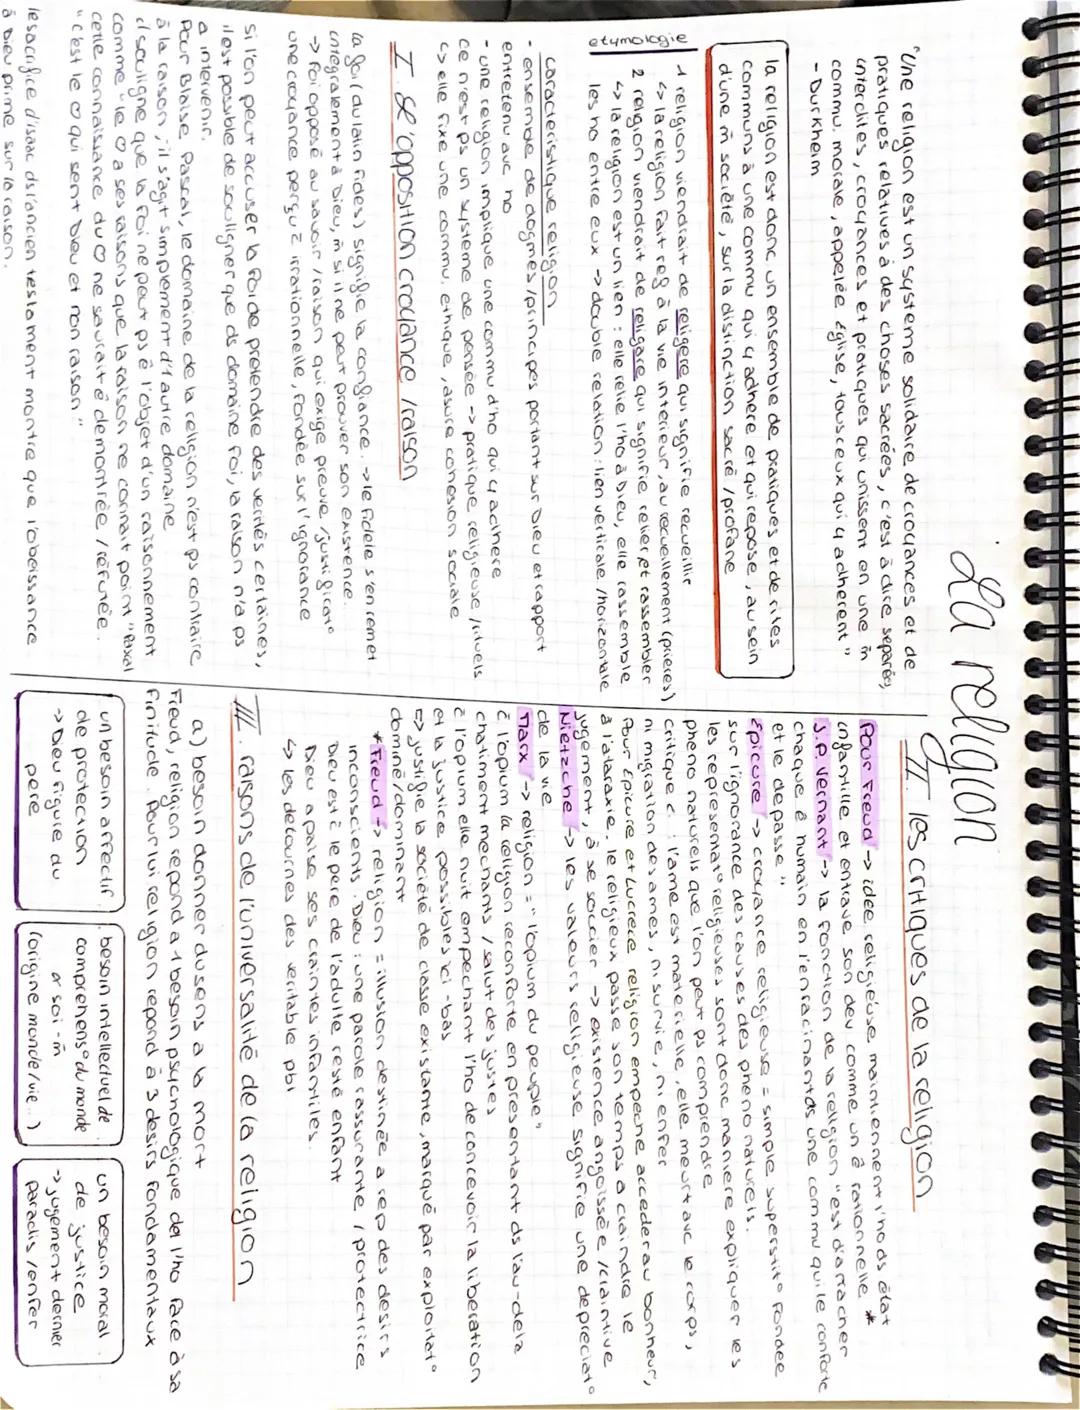 La religion
"Une religion est un système solidaire de croyances et de
pratiques relatives à des choses sacrées, c'est à dire separés,
interdites, croyances et pratiques qui unissent en une m̄
commu. morale, appelée Église, tous ceux qui y adherent"
- Durkheim
la religion est donc un ensemble de pratiques et de rites
communs à une commu qui y adhere et qui repose, au sein
d'une m̄ société, sur la distinction sacré / profane
etymologie
1 religion viendrait de religere qui signifie recueillir
↳ la religion fait ref à la vie interieur, au recueillement (prieres)
2 religion viendrait de religare qui signifie relier et rassembler
↳ la religion est un lien : elle relie l'ho à Dieu, elle rassemble
les ho entre eux → double relation : lien verticale / horizontale
caracteristique religion
- ensemble de dogmes / principes portant sur Dieu et rapport
entretenu avec ho
- une religion implique une commu d'ho qui y adhere
ce n'est ps un systeme de pensée → pratique religieuse / rituels
↳ elle fixe une commu, ethique, assure cohesion sociale
I L'opposition croyance / raison
la foi (du latin fides) signifie la confiance. → le fidele s'en remet
integralement à Dieu, m̄ si il ne peut prouver son existence.
→ Foi opposé au savoir / raison qui exige preuve / justificat°
une croyance perçu c̄ irrationnelle, fondée sur l'ignorance
si l'on peut accuser la foi de pretendre des verités certaines,
il est possible de souligner que ds domaine foi, la raison n'a ps
a intervenir.
Pour Blaise Pascal, le domaine de la religion n'est ps contraire
à la raison ; il s'agit simplement d'1 autre domaine
il souligne que la foi ne peut ps ê l'objet d'un raisonnement
comme "le ♡ a ses raisons que la raison ne connait point" Pascal
cette connaissance du ♡ ne saurait ê demontrée / réfutée.
"c'est le ♡ qui sent Dieu et non raison."
le sacrifice d'isaac ds l'ancien testament montre que l'obeissance
à Dieu prime sur la raison.
II les critiques de la religion
Pour Freud → idée religieuse maintiennent l'ho ds état
infantille et entrave son dev comme un ê rationnelle *
J.P. Vernant → la fonction de la religion "est d'arracher
chaque ê humain en l'enracinant ds une commu qui le conforte
et le depasse"
Epicure → croyance religieuse = simple superstit° fondée
sur l'ignorance des causes des pheno naturels.
les representat° religieuses sont donc maniere expliquer les
pheno naturels que l'on peut ps comprendre
critique c : l'ame est materielle, elle meurt avec le corps,
ni migration des ames, ni survie, ni enfer
Pour Epicure et Lucrece religion empeche acceder au bonheur,
à l'ataraxie. le religieux passe son temps a craindre le
jugement, à se soucier → existence angoissée / craintive
Nietzche → les valeurs religieuse signifie une depreciat°
de la vie
Marx → religion = "l'opium du peuple"
c̄ l'opium la religion reconforte en presentant ds l'au-dela
chatiment mechants / salut des justes
c̄ l'opium elle nuit empechant l'ho de concevoir la liberation
et la justice possibles ici-bas
=> justifie la société de classe existante, marqué par exploitat°
dominé / dominant
* Freud → religion = illusion destinée a rep des desirs
inconscients. Dieu : une parole rassurante / protectrice
Dieu est c̄ le pere de l'adulte resté enfant
Dieu apaise ses craintes infantiles
↳ les detournes des veritable pbl
III. raisons de l'universalité de la religion
a) besoin donner du sens a la mort
Freud, religion repond a 1 besoin psychologique del l'ho face à sa
finitude. Pour lui religion repond à 3 desirs fondamentaux
un besoin affectif
de protection
→ Dieu figure du
pere
besoin intellectuel de
comprehens° du monde
or soi-m̄
(origine monde / vie...)
un besoin moral
de justice
→ jugement dernier
paradis / enfer